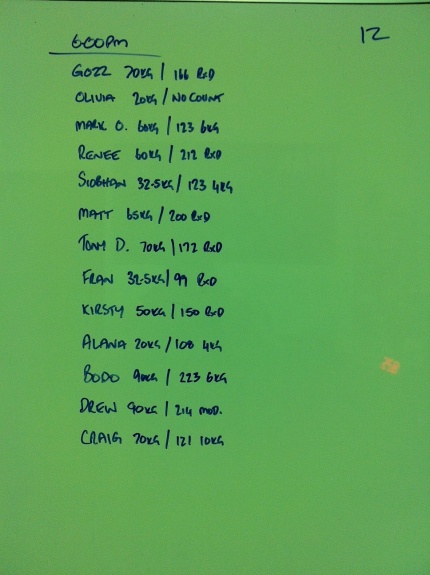 6:00pm
12
GOZZ 70KG / 166 RxD
OLIVIA 20KG / NO COUNT
MARK O. 60KG / 123 6KG
RENEE 60KG / 212 RxD
SIOBHAN 32.5KG / 123 4KG
MATT 65KG / 200 RxD
TONY D. 70KG / 172 RxD
FRAN 32.5KG / 99 RxD
KIRSTY 50KG / 150 RxD
ALANA 20KG / 108 4KG
BODO 90KG / 223 6KG
DREW 90KG / 214 MOD.
CRAIG 70KG / 121 10KG